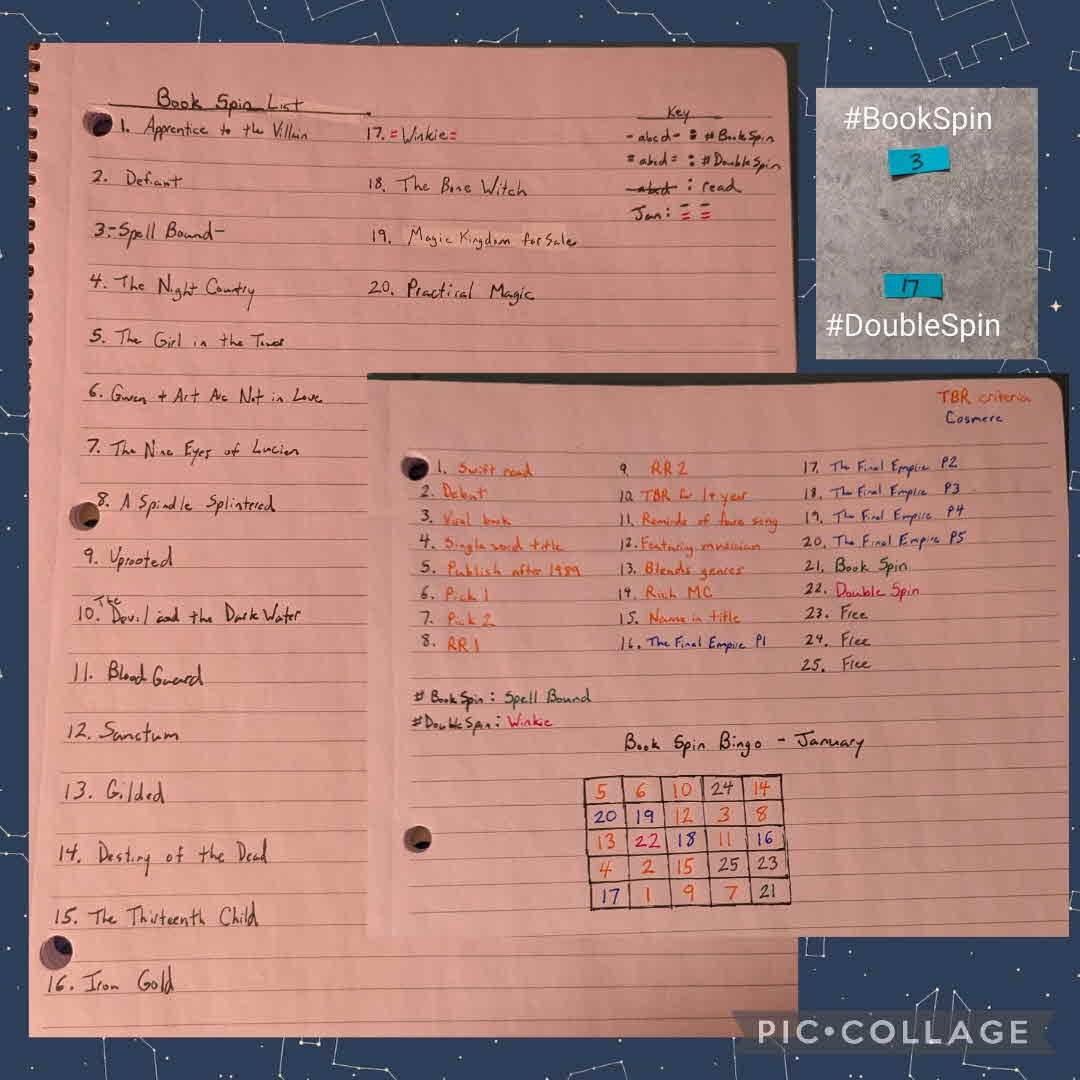 Book Spin List
1. Apprentice to the Villain
2. Defiant
3.-Spell Bound-
4. The Night Country
5. The Girl in the Tower
6. Gwen + Art Are Not in Love
7. The Nine Eyes of Lucien
8. A Spindle Splintered
9. Uprooted
10. The Devil and the Dark Water
11. Blood Guard
12. Sanctum
13. Gilded
14. Destiny of the Dead
15. The Thirteenth Child
16. Iron Gold
17. =Winkie=
18. The Bone Witch
19. Magic Kingdom for Sale
20. Practical Magic
Key
-abcd- : #BookSpin
=abcd= : #DoubleSpin
abcd : read
Jan: - =
#BookSpin
3
17
#DoubleSpin
TBR criteria
Cosmere
1. Swift read
2. Debut
3. Viral book
4. Single word title
5. Publish after 1989
6. Pick 1
7. Pick 2
8. RR 1
9. RR 2
10. TBR for 1+ year
11. Reminds of fave song
12. Featuring musician
13. Blends genres
14. Rich MC
15. Name in title
16. The Final Empire P1
17. The Final Empire P2
18. The Final Empire P3
19. The Final Empire P4
20. The Final Empire P5
21. Book Spin
22. Double Spin
23. Free
24. Free
25. Free
#BookSpin: Spell Bound
#DoubleSpin: Winkie
Book Spin Bingo - January
5 6 10 24 14
20 19 12 3 8
13 22 18 11 16
4 2 15 25 23
17 1 9 7 21
PIC•COLLAGE